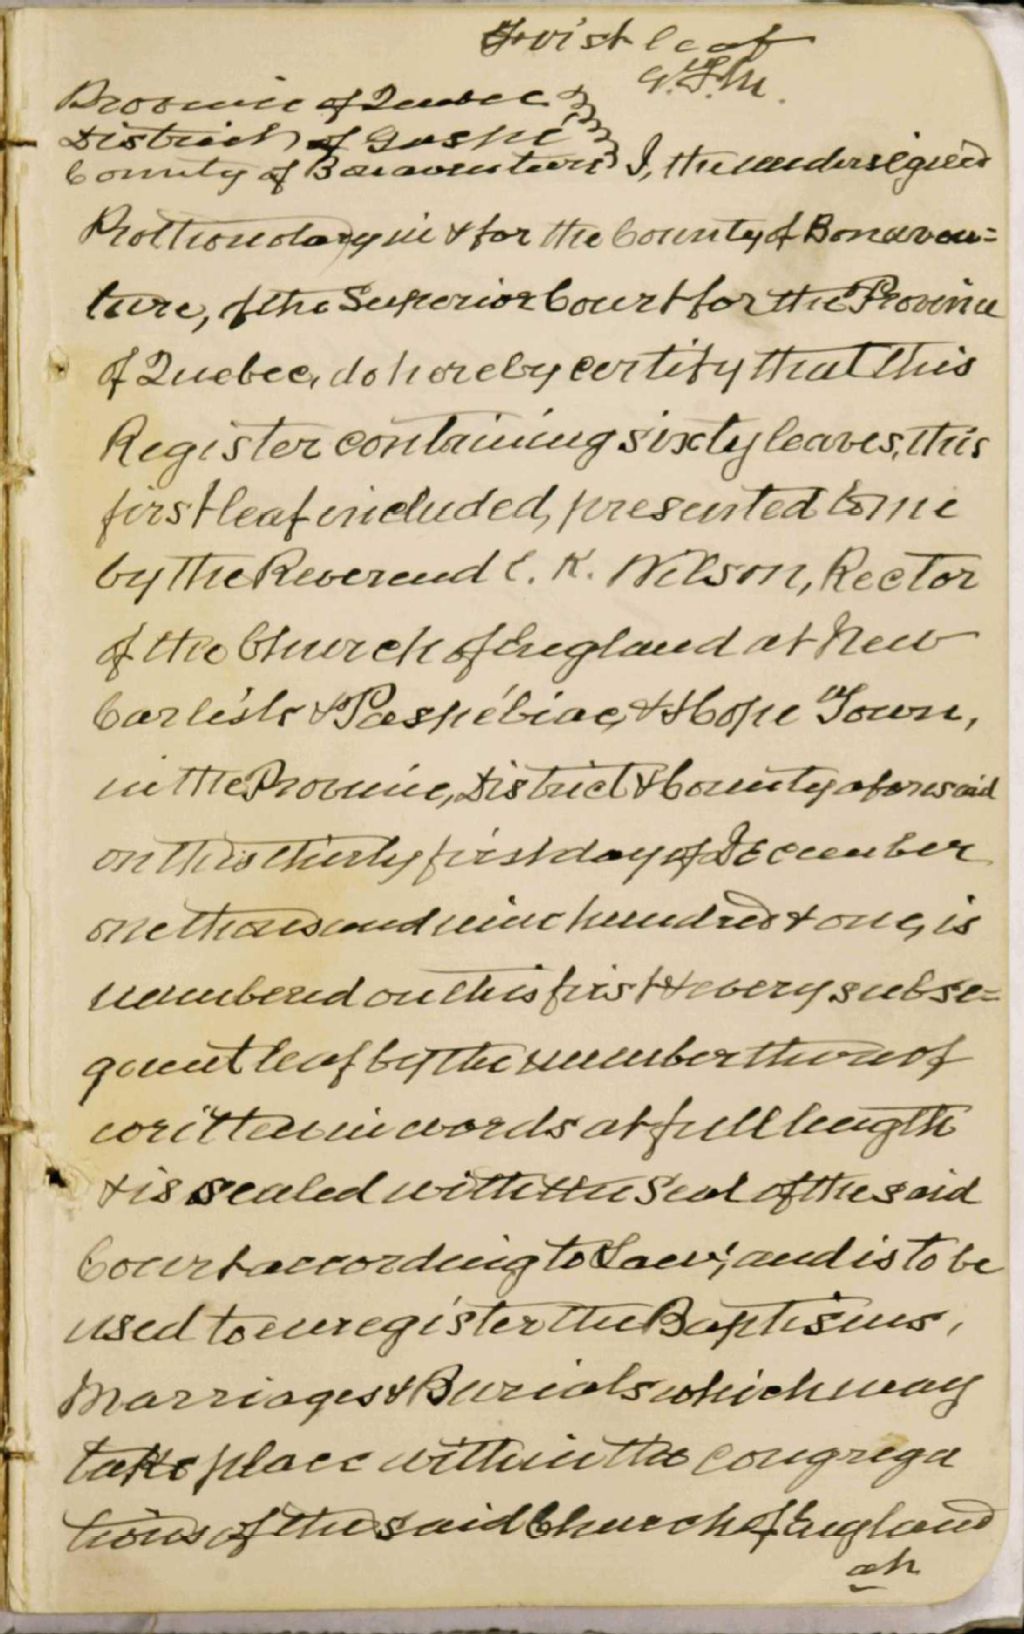 First leaf
G.F.M.
Province of Quebec
District of Gaspé
County of Bonaventure I, the undersigned
Prothonotary in & for the County of Bonaven=
ture, of the Superior Court for the Province
of Quebec, do hereby certify that this
Register containing sixty leaves, this
first leaf included, presented to me
by the Reverend E. K. Wilson, Rector
of the Church of England at New
Carlisle & Paspébiac, & Hope Town,
in the Province, District & County aforesaid
on this thirty first day of December
one thousand nine hundred & one, is
numbered on this first & every subse=
quent leaf by the number thereof
written in words at full length
& is sealed with the Seal of the said
Court according to Law; and is to be
used to enregister the Baptisms,
Marriages & Burials which may
take place within the congrega
tions of the said Church of England
at